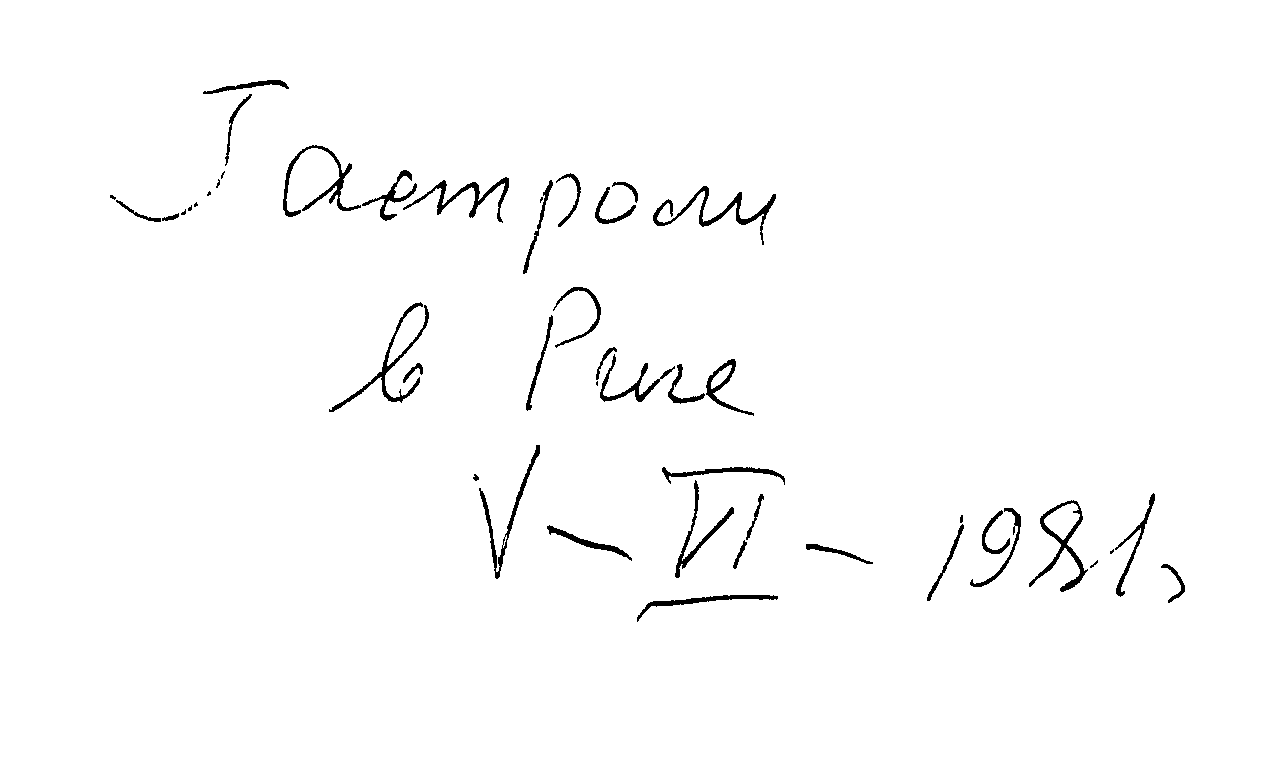 Гастроли
в Риге
V - VI - 1981,